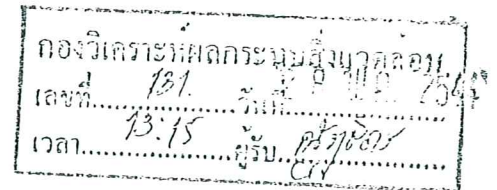 กองวิเคราะห์ผลกระทบสิ่งแวดล้อม
เลขที่ 131. วันที่
เวลา 13:15 ผู้รับ